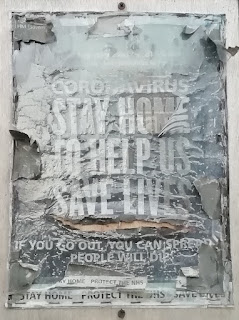 CORONAVIRUS
STAY HOME
TO HELP US
SAVE LIVES
IF YOU GO OUT, YOU CAN SPREAD
PEOPLE WILL DIE
STAY HOME PROTECT THE NHS
STAY HOME PROTECT THE NHS SAVE LIVES